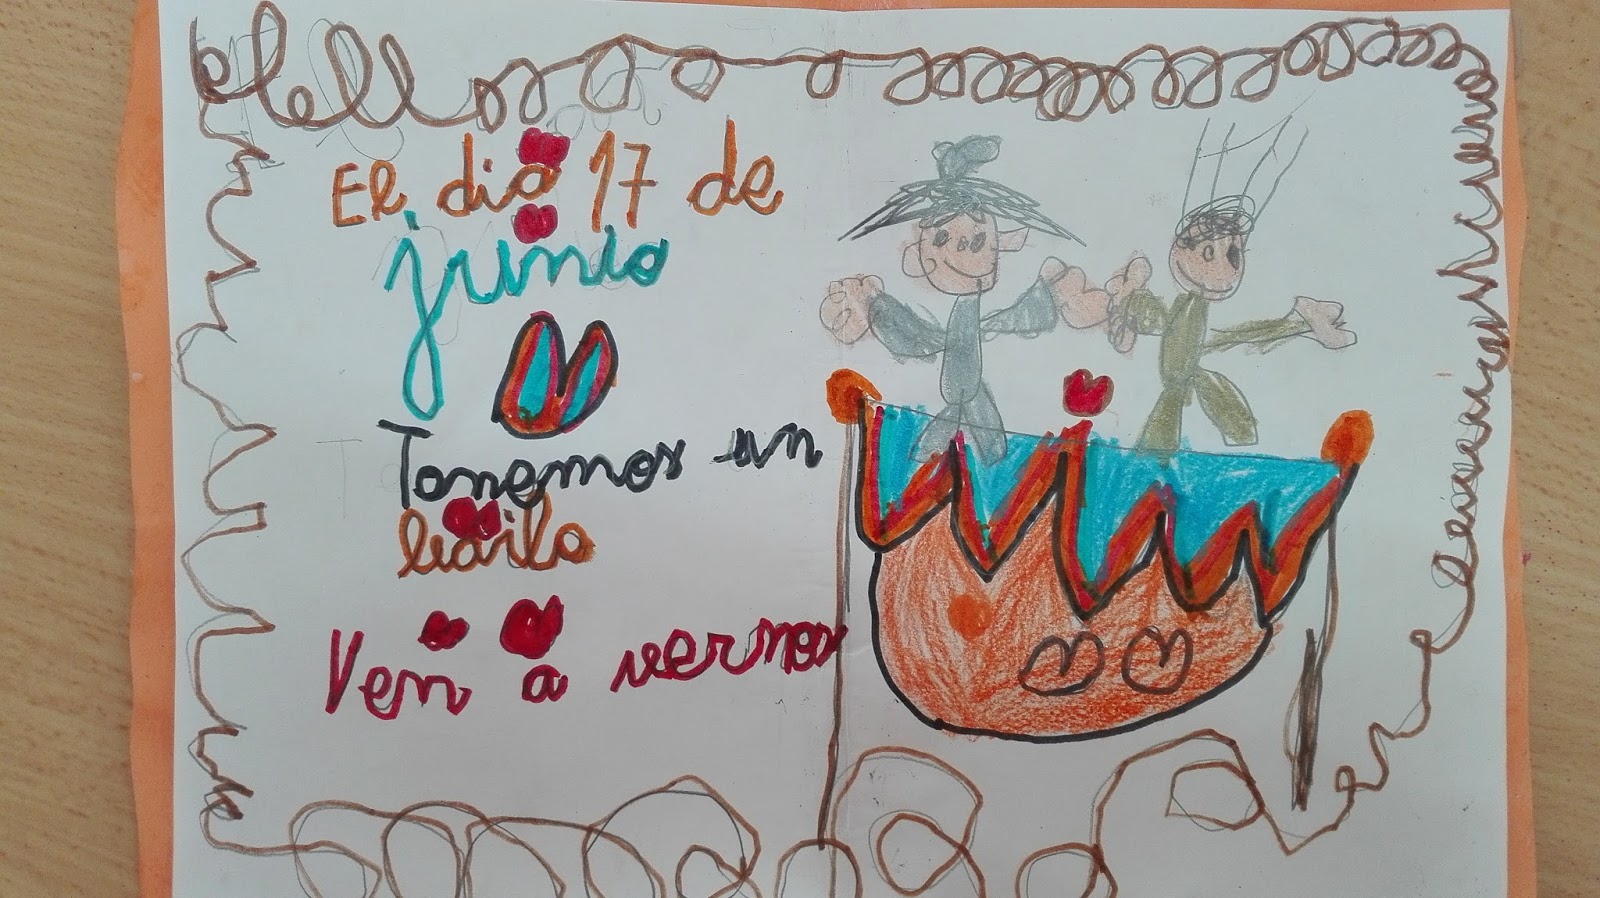 El dia 17 de
junio
Tenemos un
baile
Ven a vernos